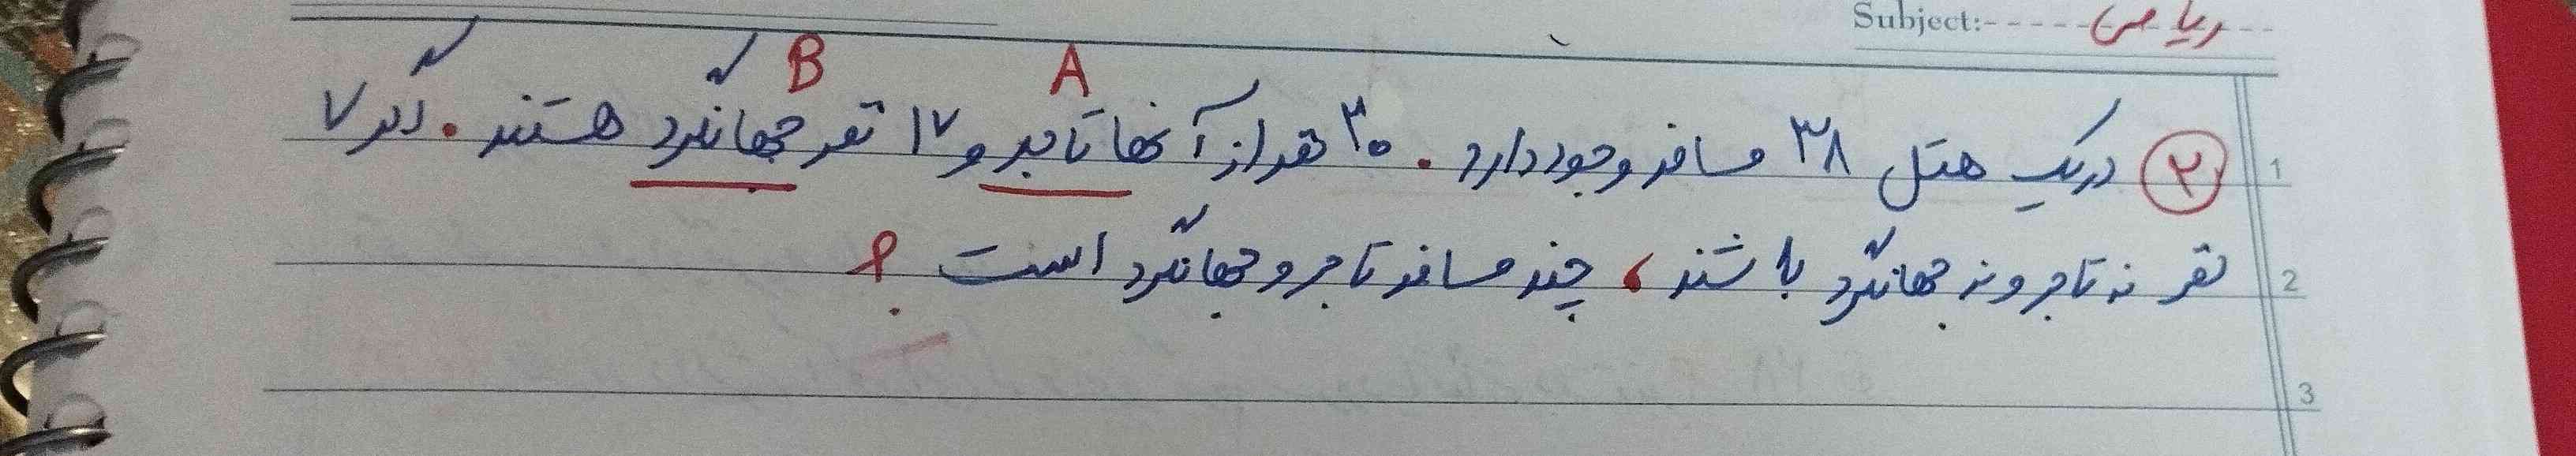 Subject: ریاضی
B A
۲ در یک هتل ۳۸ مسافر وجود دارد. ۳۰ نفر از آنها تاجر و ۱۷ نفر جهانگرد هستند. اگر ۷
نفر نه تاجر و نه جهانگرد باشند، چند مسافر تاجر و جهانگرد است؟
1
2
3